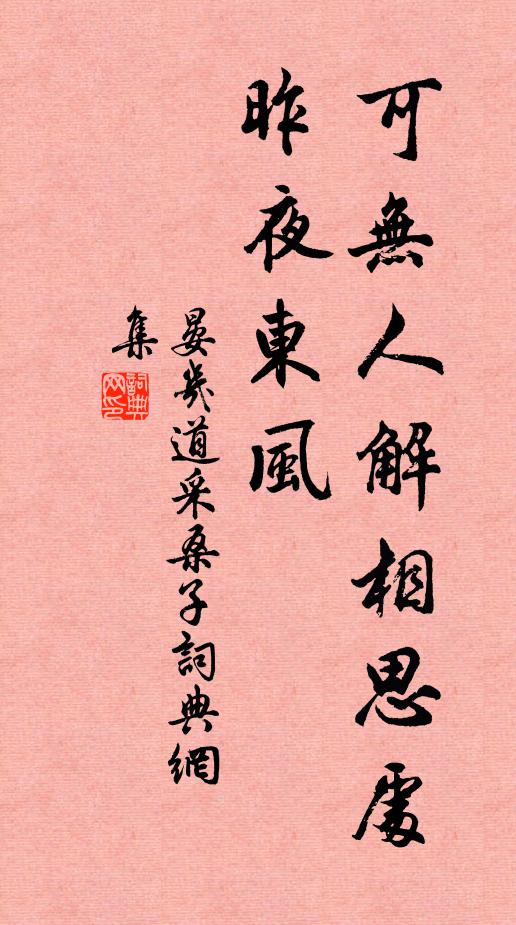 可無人解相思處
昨夜東風
晏幾道采桑子詞典網
集
詞典
网印